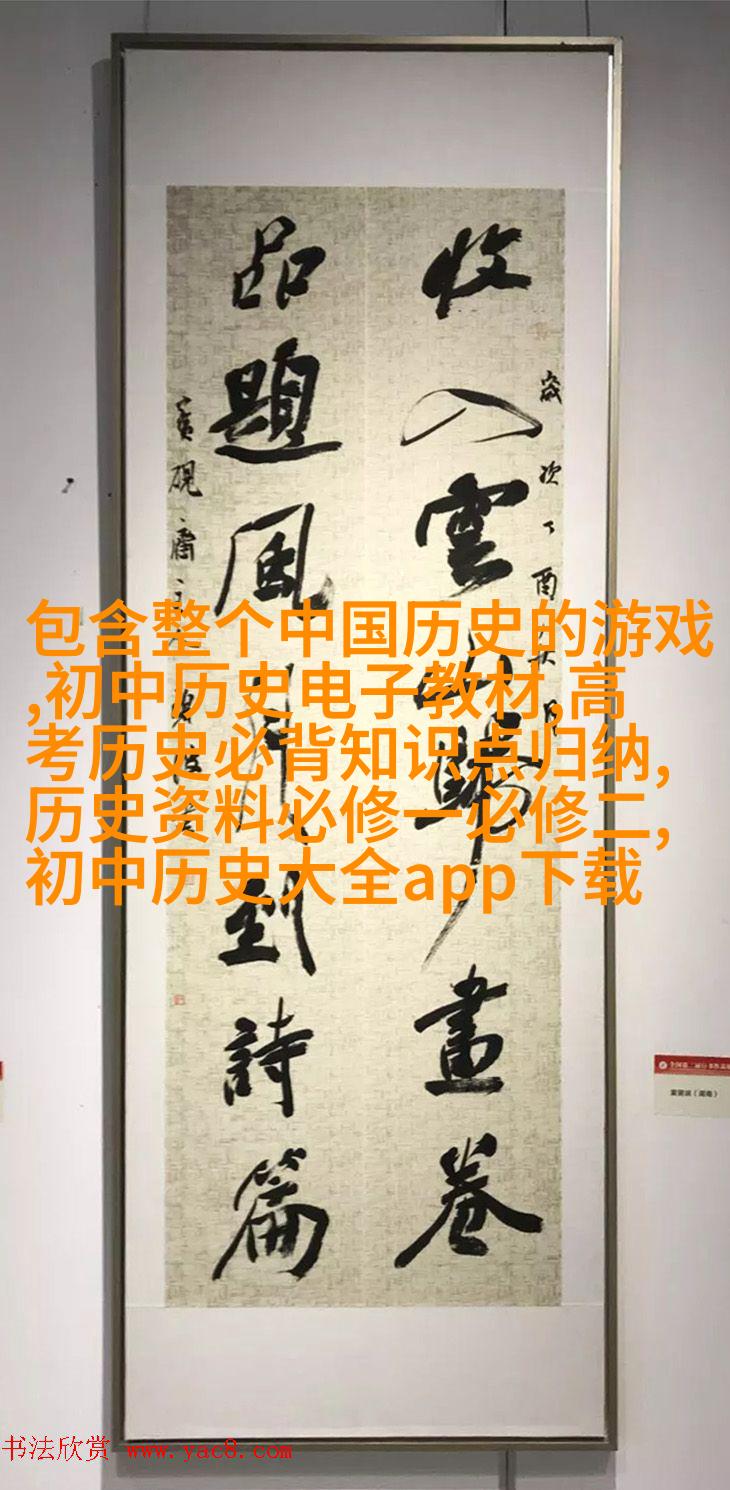 收入雲山歸畫卷
歲次丁酉
品題風月到詩篇
賓硯齋
包含整个中国历史的游戏
,初中历史电子教材,高
考历史必背知识点归纳,
历史资料必修一必修二,
初中历史大全app下载
书法欣赏 www.yac8.com